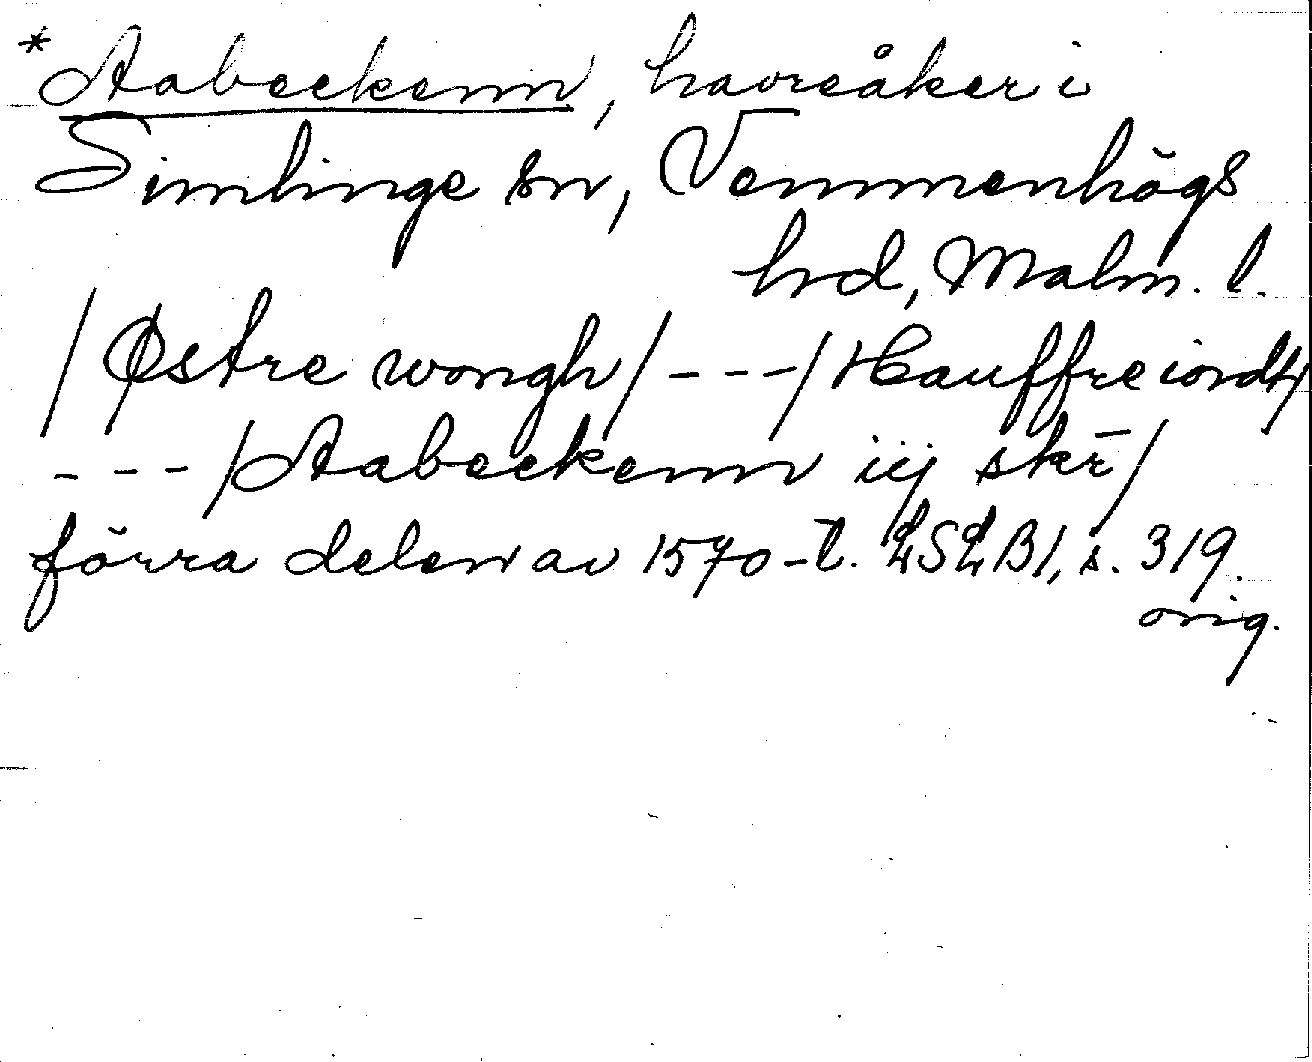 *Aabeckenn, havreåker i
Simlinge sn, Vemmenhögs
hrd, Malm. l.
/Østre wongh/---/Hauffreiordt/
---/Aabeckenn iij skr̄/
förra delen av 1570-t. LSLB1, s. 319.
orig.